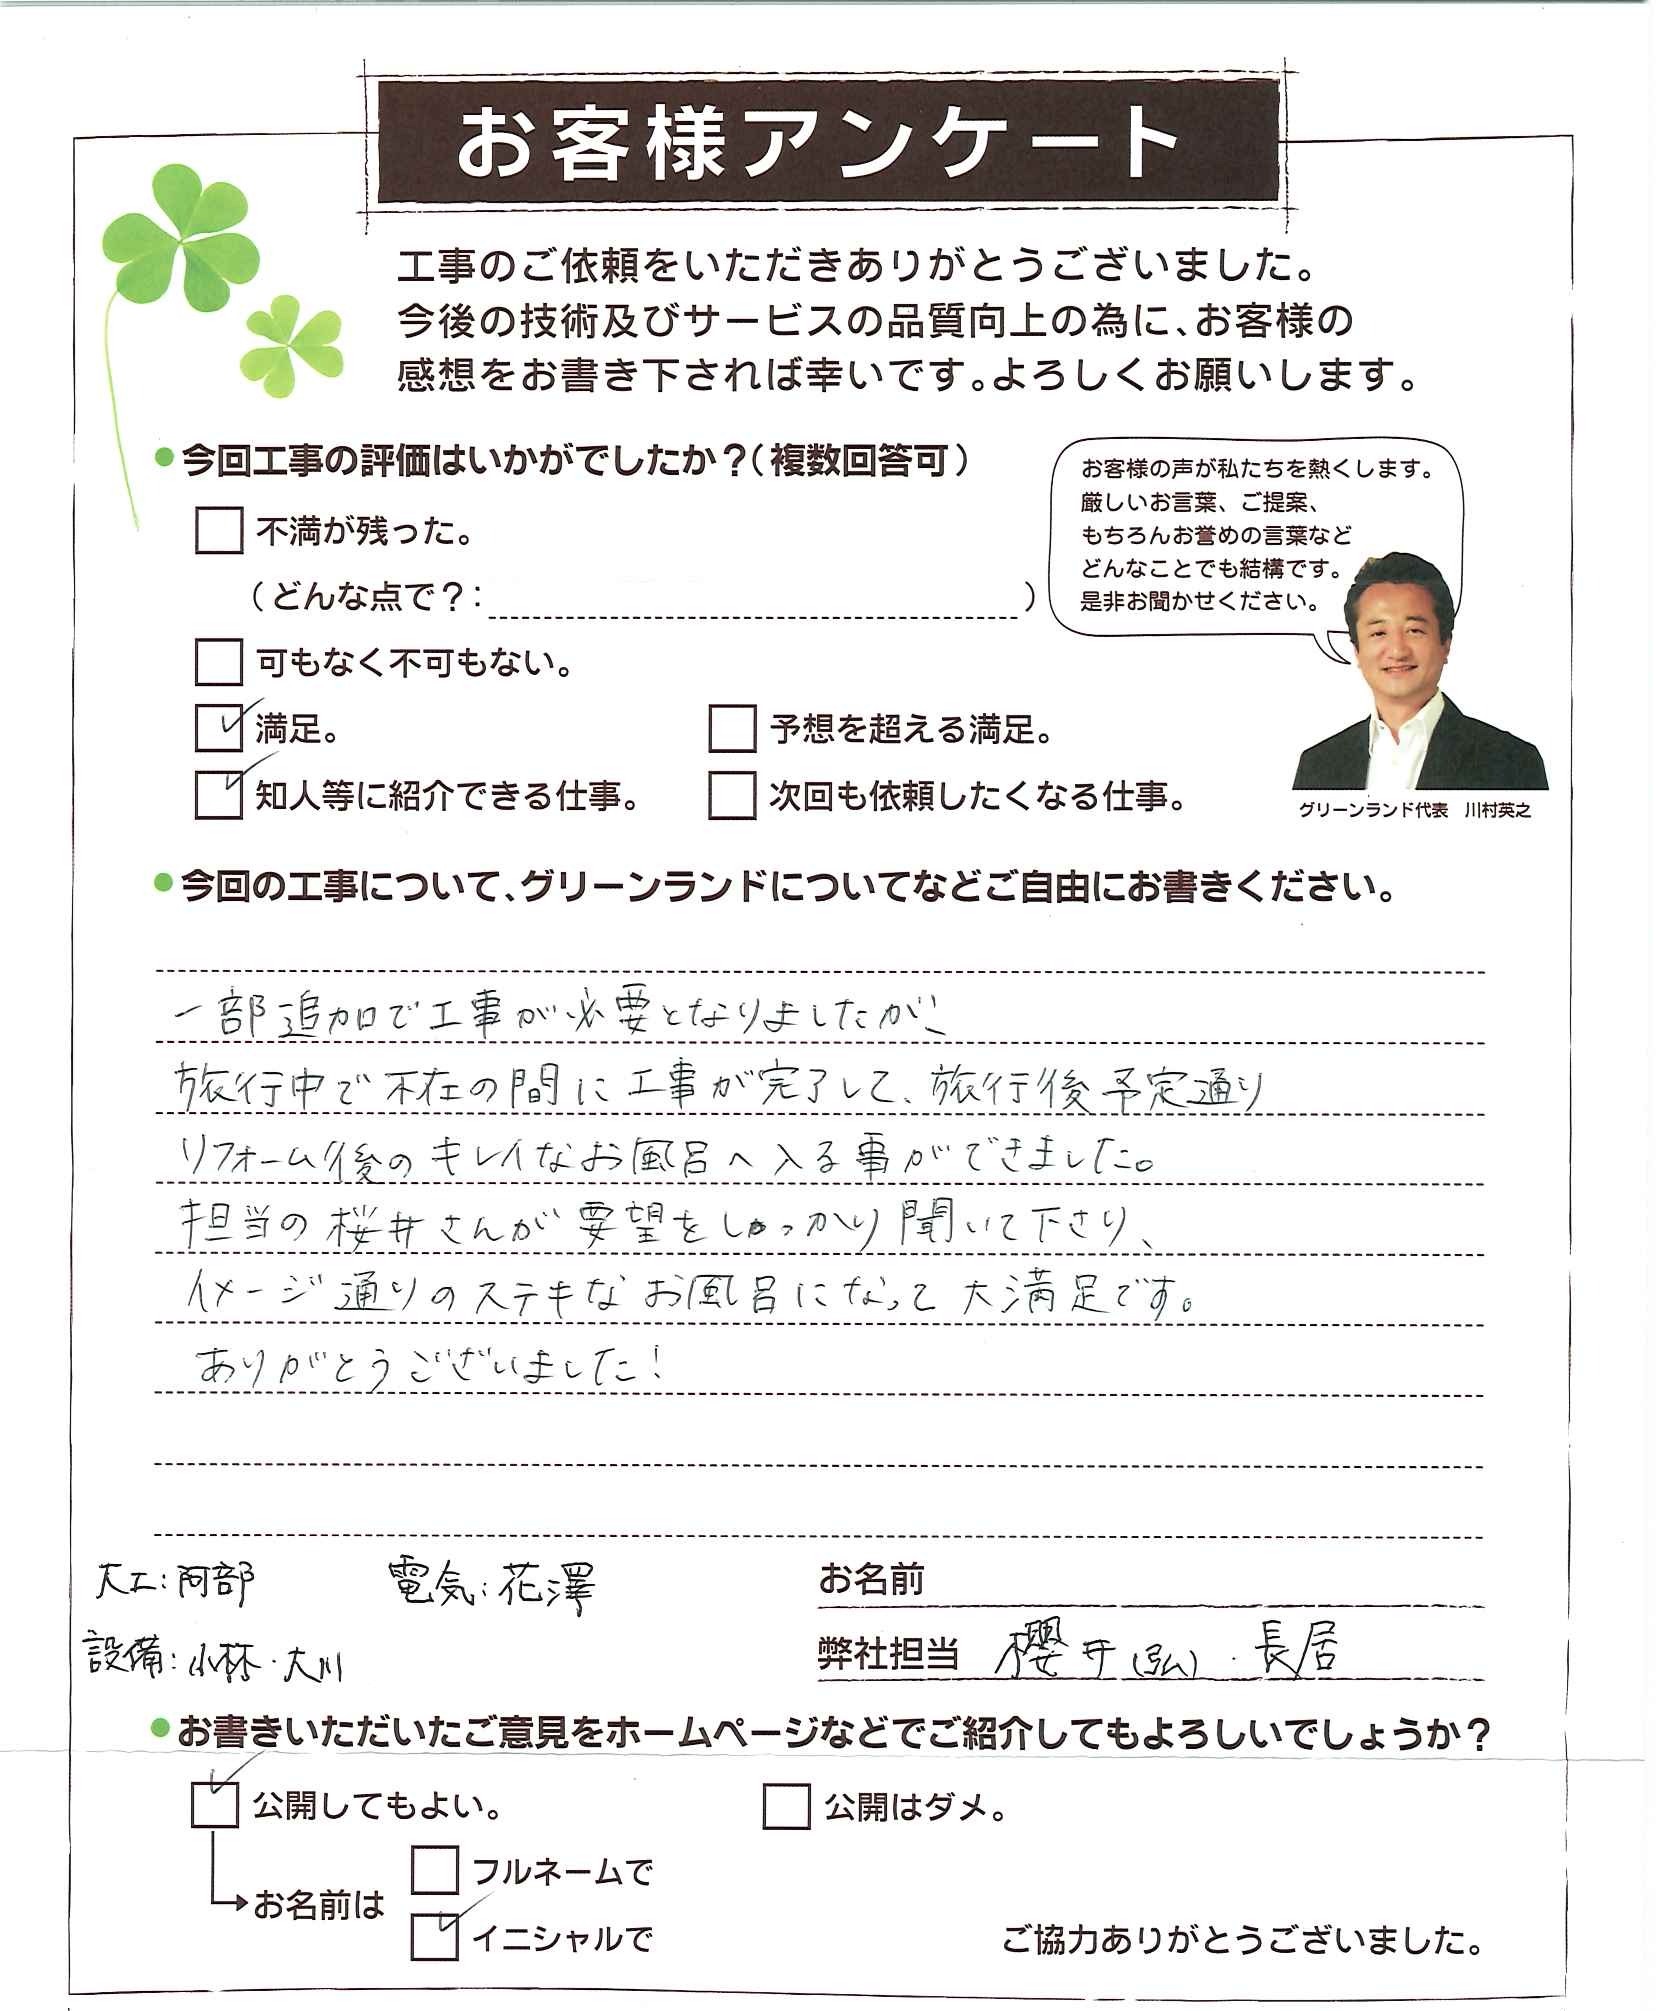 お客様アンケート
工事のご依頼をいただきありがとうございました。
今後の技術及びサービスの品質向上の為に、お客様の
感想をお書き下されば幸いです。よろしくお願いします。
今回工事の評価はいかがでしたか？（複数回答可）
不満が残った。
（どんな点で？：　　　）
可もなく不可もない。
満足。
予想を超える満足。
知人等に紹介できる仕事。
次回も依頼したくなる仕事。
お客様の声が私たちを熱くします。
厳しいお言葉、ご提案、
もちろんお誉めの言葉など
どんなことでも結構です。
是非お聞かせください。
グリーンランド代表　川村英之
今回の工事について、グリーンランドについてなどご自由にお書きください。
一部追加で工事が必要となりましたが、
旅行中で不在の間に工事が完了して、旅行後予定通り
リフォーム後のキレイなお風呂へ入る事ができました。
担当の桜井さんが要望をしっかり聞いて下さり、
イメージ通りのステキなお風呂になって大満足です。
ありがとうございました!
大工：阿部　電気：花澤
設備：小林・大川
お名前
弊社担当　櫻井(弘)・長居
お書きいただいたご意見をホームページなどでご紹介してもよろしいでしょうか？
公開してもよい。
公開はダメ。
お名前は
フルネームで
イニシャルで
ご協力ありがとうございました。